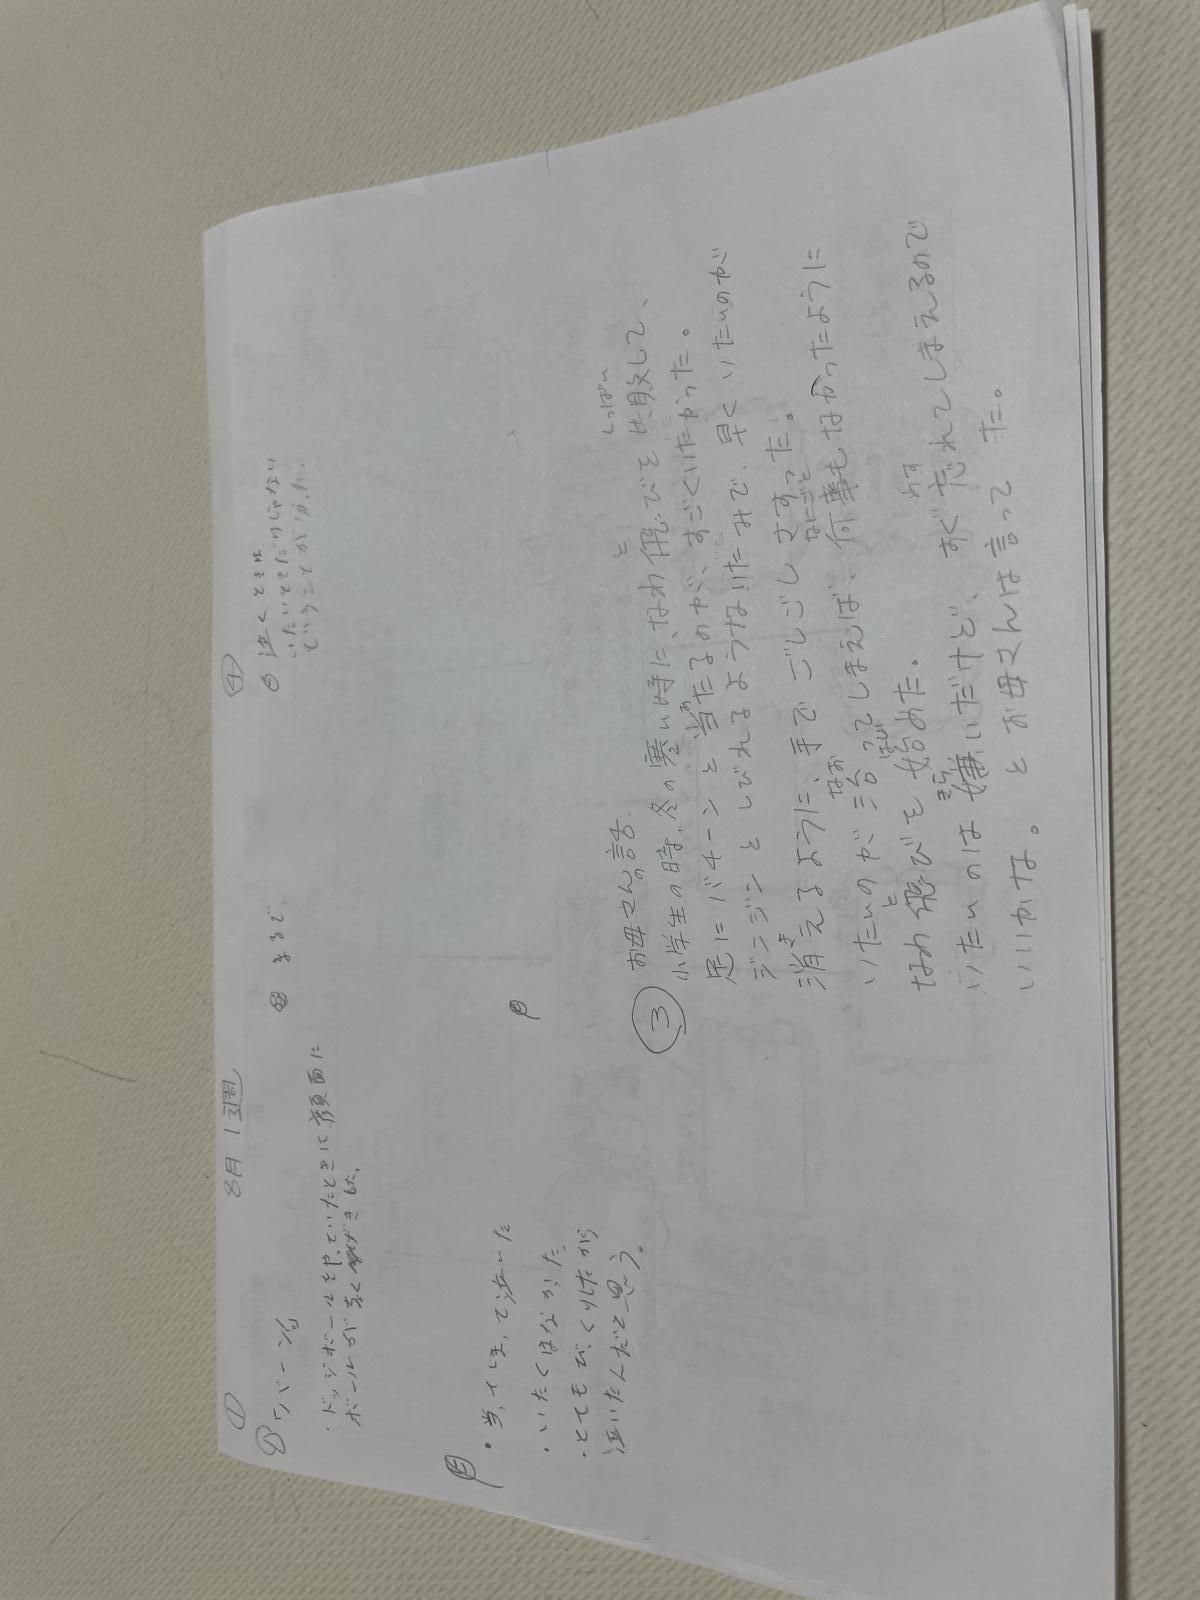 8月1週
①
・ドッジボールをやっていたときに顔面に
ボールがきました。
・当たってしまって泣いた
・いたくはなかった
・とてもびっくりしたから
泣いたんだと思う。
まるで
③
お母さんの話
小学生の時、冬の寒い時に、なわ飛びを失敗して、
足にバチーンと当たるのが、すごくいたかった。
ジンジンとしびれるようないたみで、早くいたいのが
消えるように、手でごしごしさすった。
いたいのが治ってしまえば、何事もなかったように
なわ飛びを始めた。
いたいのは嫌いだけど、すぐ忘れてしまえるので
いいかな。とお母さんは言ってた。
④
泣くときは
いたいときだけじゃない
ということが分かった